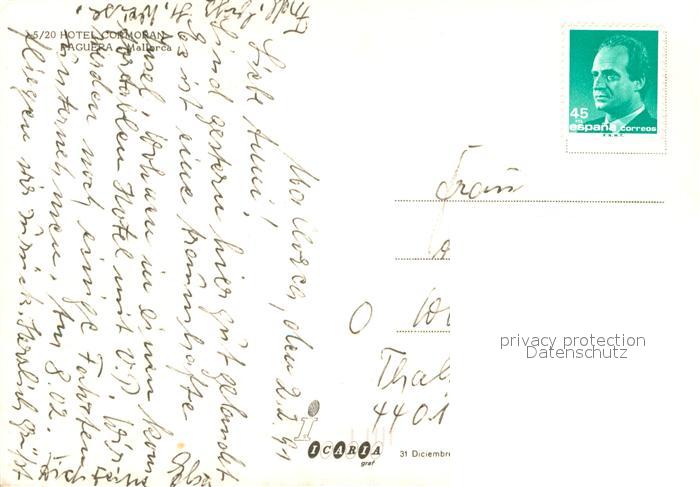 25/20 HOTEL CORMORAN
PAGUERA - Mallorca
Mallorca, den 2.2.91
Liebe Anni!
Sind gestern hier gut gelandet
Es ist eine traumhafte
Insel, wohnen in einem kom
fortablen Hotel mit V.P. Wir
werden noch einige Fahrten
unternehmen. Am 8.02.
fliegen wir zurück. Herzlich grüßt
Dich
45
PTA
españa correos
F.N.M.T.
Frau
O
4401
ICARIA
graf
31 Diciembre
privacy protection
Datenschutz